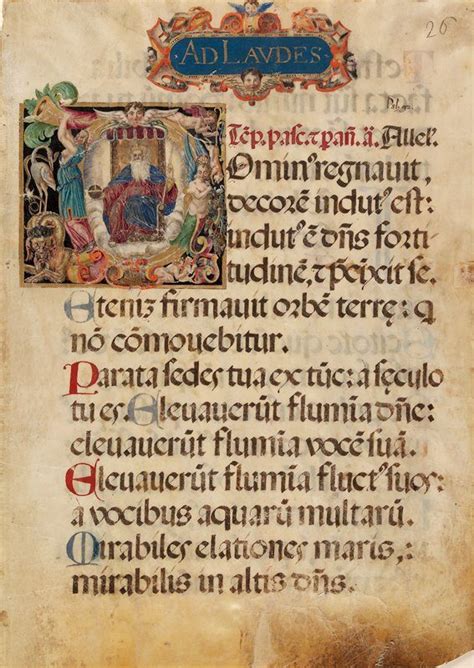 26
AD LAVDES
Tēp. pasc. τ pāñ. ā. Allel.
Domin⁹ regnauit,
decorē indut⁹ est:
indut⁹ ē dñs forti
tudinē, τ p̄cīxit se.
Eteniz firmauit orbē terrę: q
nō cōmouebitur.
Parata sedes tua ex tūc: a sęculo
tu es. Eleuauerūt flumīa dñe:
eleuauerūt flumīa vocē suā.
Eleuauerūt flumīa fluct⁹ suos:
a vocibus aquarū multarū.
Mirabiles elationes maris,:
mirabilis in altis dñs.